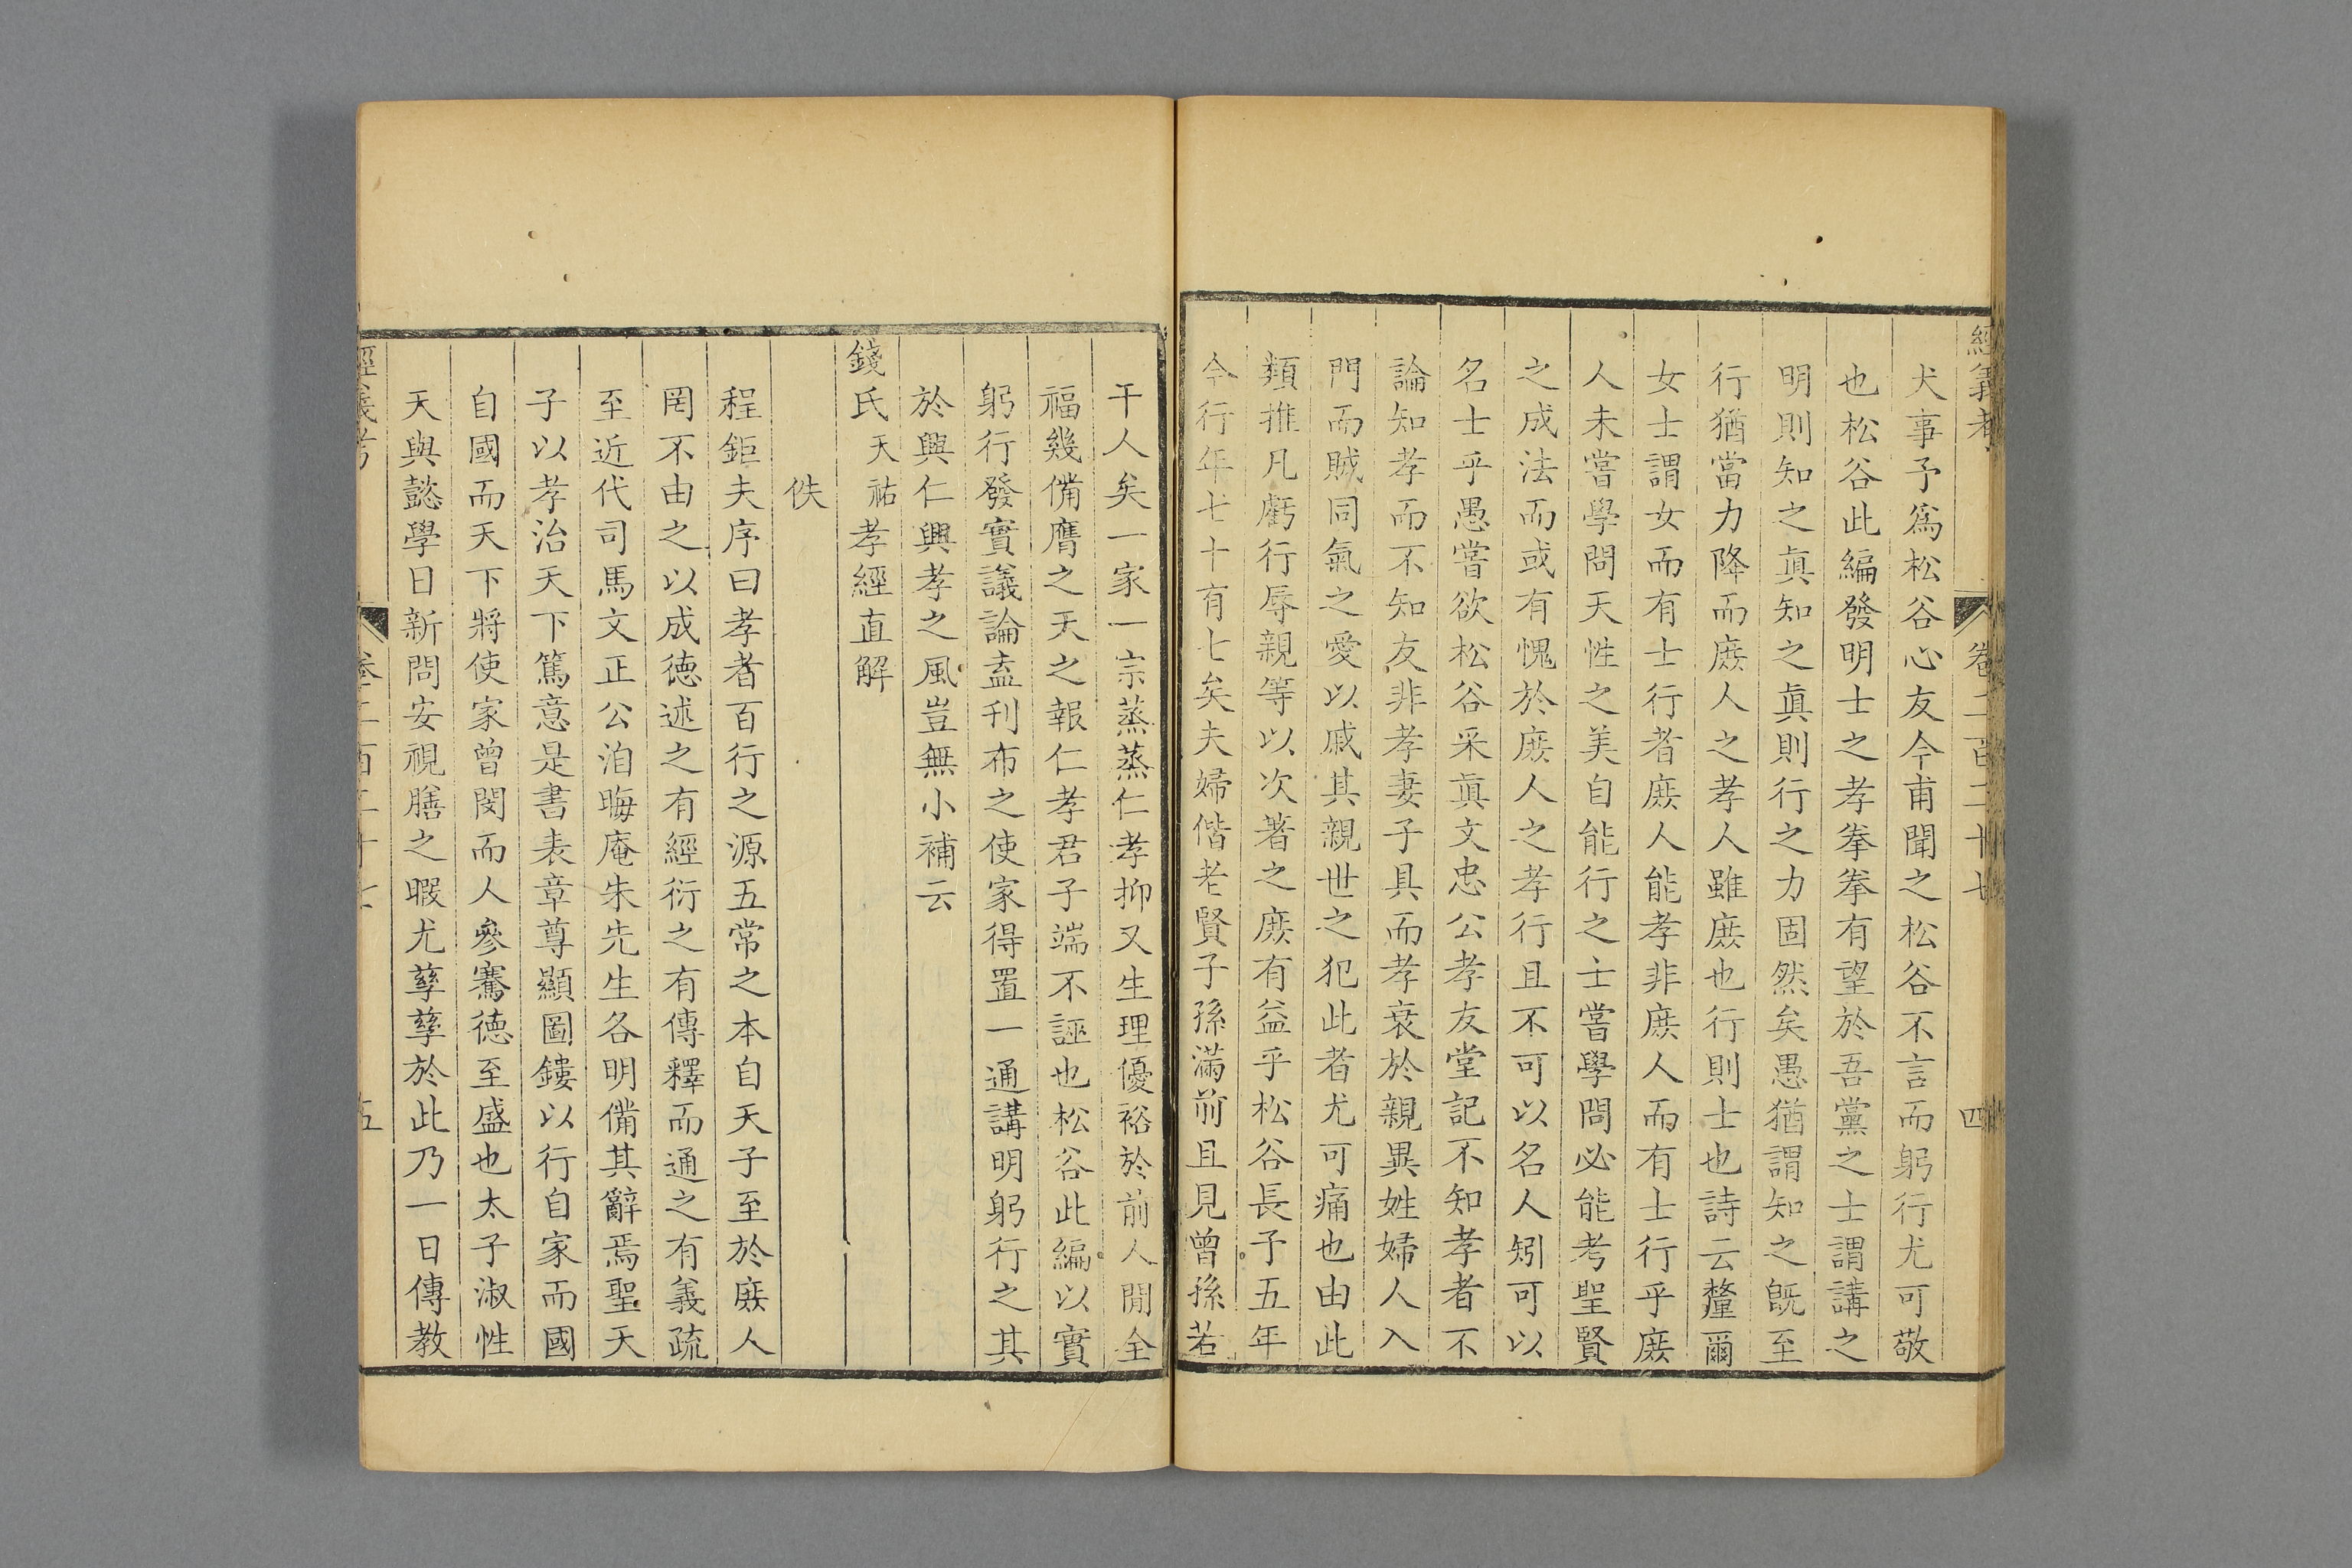 經義考 卷二百二十七 四
犬事予爲松谷心友今甫聞之松谷不言而躬行尤可敬
也松谷此編發明士之孝拳拳有望於吾黨之士謂講之
明則知之真知之真則行之力固然矣愚猶謂知之旣至
行猶當力降而庶人之孝人雖庶也行則士也詩云釐爾
女士謂女而有士行者庶人能孝非庶人而有士行乎庶
人未嘗學問天性之美自能行之士嘗學問必能考聖賢
之成法而或有愧於庶人之孝行且不可以名人矧可以
名士乎愚嘗欲松谷采真文忠公孝友堂記不知孝者不
論知孝而不知友非孝妻子具而孝衰於親異姓婦人入
門而賊同氣之愛以戚其親世之犯此者尤可痛也由此
類推凡虧行辱親等以次著之庶有益乎松谷長予五年
今行年七十有七矣夫婦偕老賢子孫滿前且見曾孫若
干人矣一家一宗蒸蒸仁孝抑又生理優裕於前人閒全
福幾備膺之天之報仁孝君子端不誣也松谷此編以實
躬行發實議論盍刊布之使家得置一通講明躬行之其
於興仁興孝之風豈無小補云
錢氏天祐孝經直解
佚
程鉅夫序曰孝者百行之源五常之本自天子至於庶人
罔不由之以成德述之有經衍之有傳釋而通之有義疏
至近代司馬文正公洎晦庵朱先生各明備其辭焉聖天
子以孝治天下篤意是書表章尊顯圖鏤以行自家而國
自國而天下將使家曾閔而人參騫德至盛也太子淑性
天與懿學日新問安視膳之暇尤孳孳於此乃一日傳教
經義考 卷二百二十七 五